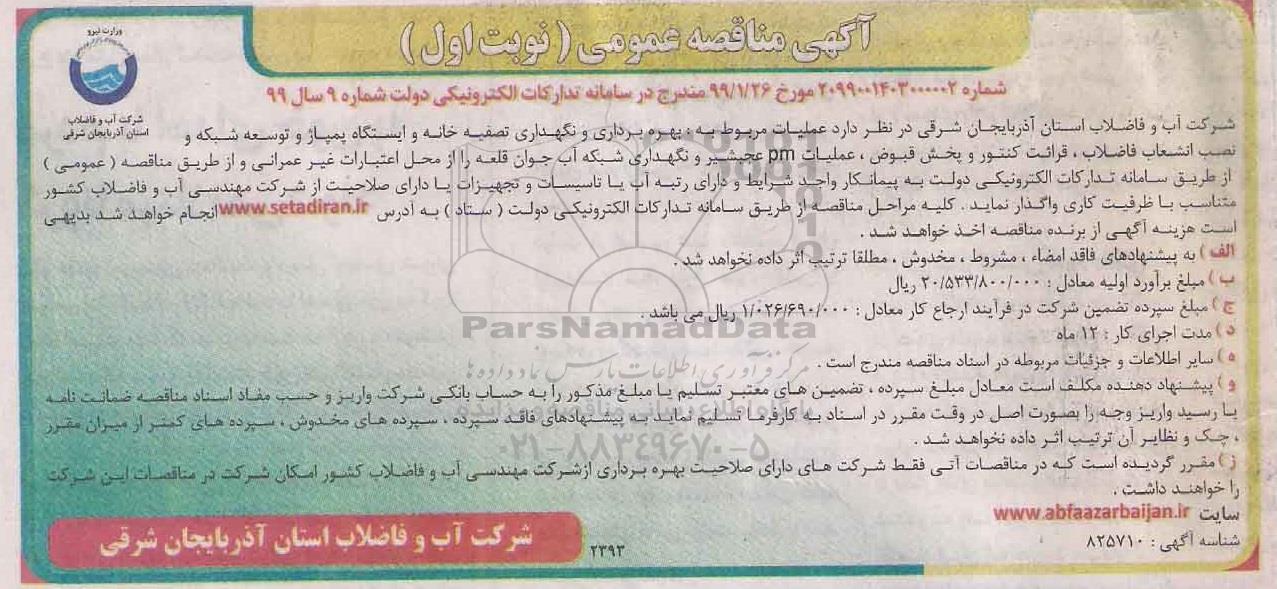 آگهی مناقصه عمومی ( نوبت اول )
وزارت نیرو
شرکت آب و فاضلاب
استان آذربایجان شرقی
شماره ۲۰۹۹۰۰۱۴۰۳۰۰۰۰۰۲ مورخ ۹۹/۱/۲۶ مندرج در سامانه تدارکات الکترونیکی دولت شماره ۹ سال ۹۹
شرکت آب و فاضلاب استان آذربایجان شرقی در نظر دارد عملیات مربوط به : بهره برداری و نگهداری تصفیه خانه و ایستگاه پمپاژ و توسعه شبکه و
نصب انشعاب فاضلاب ، قرائت کنتور و پخش قبوض ، عملیات pm عجبشیر و نگهداری شبکه آب جوان قلعه را از محل اعتبارات غیر عمرانی و از طریق مناقصه ( عمومی )
از طریق سامانه تدارکات الکترونیکی دولت به پیمانکار واجد شرایط و دارای رتبه آب یا تاسیسات و تجهیزات یا دارای صلاحیت از شرکت مهندسی آب و فاضلاب کشور
متناسب با ظرفیت کاری واگذار نماید . کلیه مراحل مناقصه از طریق سامانه تدارکات الکترونیکی دولت ( ستاد ) به آدرس www.setadiran.ir انجام خواهد شد بدیهی
است هزینه آگهی از برنده مناقصه اخذ خواهد شد .
الف ) به پیشنهادهای فاقد امضاء ، مشروط ، مخدوش ، مطلقا ترتیب اثر داده نخواهد شد .
ب ) مبلغ برآورد اولیه معادل : ۲۰/۵۳۳/۸۰۰/۰۰۰ ریال
ج ) مبلغ سپرده تضمین شرکت در فرآیند ارجاع کار معادل : ۱/۰۲۶/۶۹۰/۰۰۰ ریال می باشد .
د ) مدت اجرای کار : ۱۲ ماه
ه ) سایر اطلاعات و جزئیات مربوطه در اسناد مناقصه مندرج است .
و ) پیشنهاد دهنده مکلف است معادل مبلغ سپرده ، تضمین های معتبر تسلیم یا مبلغ مذکور را به حساب بانکی شرکت واریز و حسب مفاد اسناد مناقصه ضمانت نامه
یا رسید واریز وجه را بصورت اصل در وقت مقرر در اسناد به کارفرما تسلیم نماید به پیشنهادهای فاقد سپرده ، سپرده های مخدوش ، سپرده های کمتر از میزان مقرر
، چک و نظایر آن ترتیب اثر داده نخواهد شد .
ز ) مقرر گردیده است که در مناقصات آتی فقط شرکت های دارای صلاحیت بهره برداری ازشرکت مهندسی آب و فاضلاب کشور امکان شرکت در مناقصات این شرکت
را خواهند داشت .
سایت www.abfaazarbaijan.ir
شناسه آگهی : ۸۲۵۷۱۰
۲۳۹۳
شرکت آب و فاضلاب استان آذربایجان شرقی
ParsNamadData
مرکز فرآوری اطلاعات پارس نماد داده ها
۰۲۱-۸۸۳۴۹۶۷۰-۵